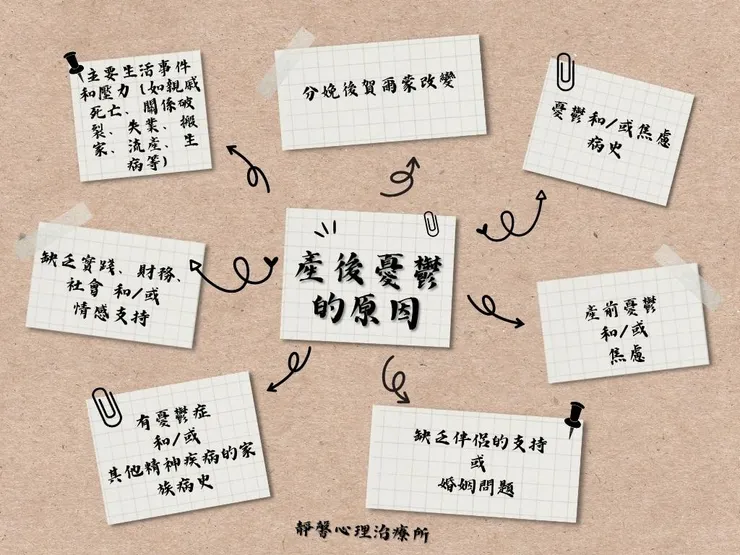 主要生活事件
和壓力（如親戚
死亡、關係破
裂、失業、搬
家、流產、生
病等）
分娩後賀爾蒙改變
憂鬱和/或焦慮
病史
缺乏實踐、財務、
社會 和/或
情感支持
產後憂鬱
的原因
產前憂鬱
和/或
焦慮
有憂鬱症
和/或
其他精神疾病的家
族病史
缺乏伴侶的支持
或
婚姻問題
靜馨心理治療所